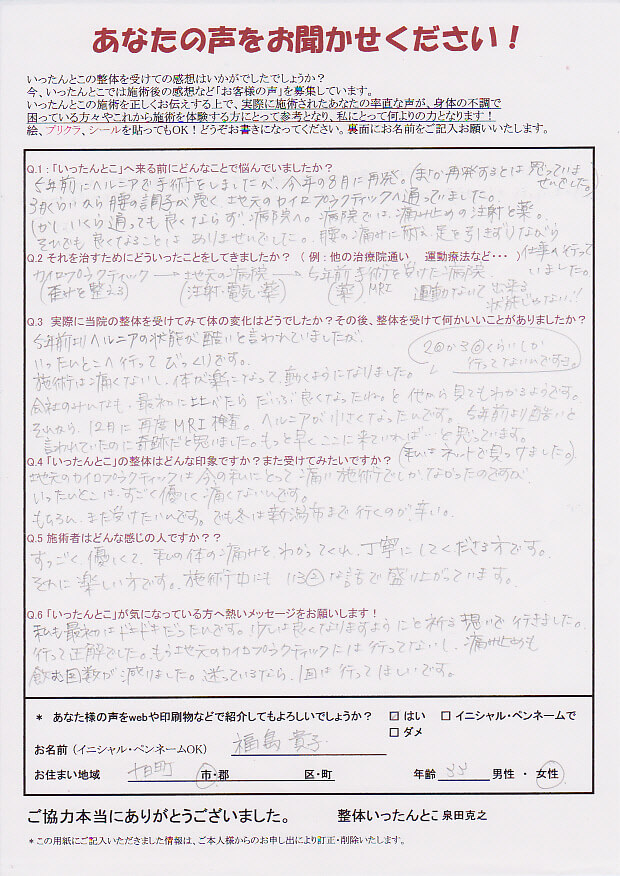 あなたの声をお聞かせください！
いったんとこの整体を受けての感想はいかがでしたでしょうか？
今、いったんとこでは施術後の感想など「お客様の声」を募集しています。
いったんとこの施術を正しくお伝えする上で、実際に施術されたあなたの率直な声が、身体の不調で
困っている方々やこれから施術を体験する方にとって参考となり、私にとって何よりの力となります！
絵、プリクラ、シールを貼ってもOK！どうぞお書きになってください。裏面にお名前をご記入お願いいたします。
Q.1：「いったんとこ」へ来る前にどんなことで悩んでいましたか？
5年前にヘルニアで手術をしましたが、今年の8月に再発。(まさか再発するとは思っていませんでした。)
3月くらいから腰の調子が悪く地元のカイロプラクティックへ通っていました。
しかし、いくら通っても良くならず病院へ。病院では痛み止めの注射と薬。
それでも良くなることはありませんでした。腰の痛みに耐え足を引きずりながら
仕事へ行っていました。
Q.2 それを治すためにどういったことをしてきましたか？（例：他の治療院通い　運動療法など・・・）
カイロプラクティック→地元の病院→5年前手術を受けた病院
(歪みを整える)　(注射・電気・薬)　(薬) MRI　運動なんて出来る
状態じゃない!!
Q.3 実際に当院の整体を受けてみて体の変化はどうでしたか？その後、整体を受けて何かいいことがありましたか？
5年前よりヘルニアの状態が酷いと言われていましたが、
いったんとこへ行ってびっくりです。
2回か3回くらいしか
行ってないんですヨ。
施術は痛くないし、体が楽になって、動くようになりました。
会社のみんなも、最初に比べたらだいぶ良くなったねっと他から見てもわかるようです。
それから、12月に再度MRI検査。ヘルニアが小さくなったんです。5年前より酷いと
言われていたのに奇跡だと思いました。もっと早くここに来ていれば…と思っています。
Q.4「いったんとこ」の整体はどんな印象ですか？また受けてみたいですか？
(私はネットで見つけました。)
地元のカイロプラクティックは今の私にとって痛い施術でしかなかったのですが、
いったんとこは、すごく優しく痛くないんです。
もちろん、また受けたいんです。でも冬は新潟市まで行くのが、辛い。
Q.5 施術者はどんな感じの人ですか？？
すっごく優しくて、私の体の痛みをわかってくれ、丁寧にしてくださる方です。
それに楽しい方です。施術中にもいろ②な話で盛り上がっています。
Q.6「いったんとこ」が気になっている方へ熱いメッセージをお願いします！
私も最初はドキドキだったんです。少しは良くなりますようにと祈る想いで行きました。
行って正解でした。もう地元のカイロプラクティックには行ってないし、痛み止めも
飲む回数が減りました。迷っているなら、1回は行ってほしいです。
＊ あなた様の声をwebや印刷物などで紹介してもよろしいでしょうか？　□ はい　□ イニシャル・ペンネームで
□ ダメ
お名前（イニシャル・ペンネームOK）　福島 貴子
お住まい地域　十日町　市・郡　区・町　年齢 33　男性 ・ 女性
ご協力本当にありがとうございました。　整体いったんとこ 泉田克之
＊この用紙にご記入いただきました情報は、ご本人様からのお申し出により訂正・削除いたします。